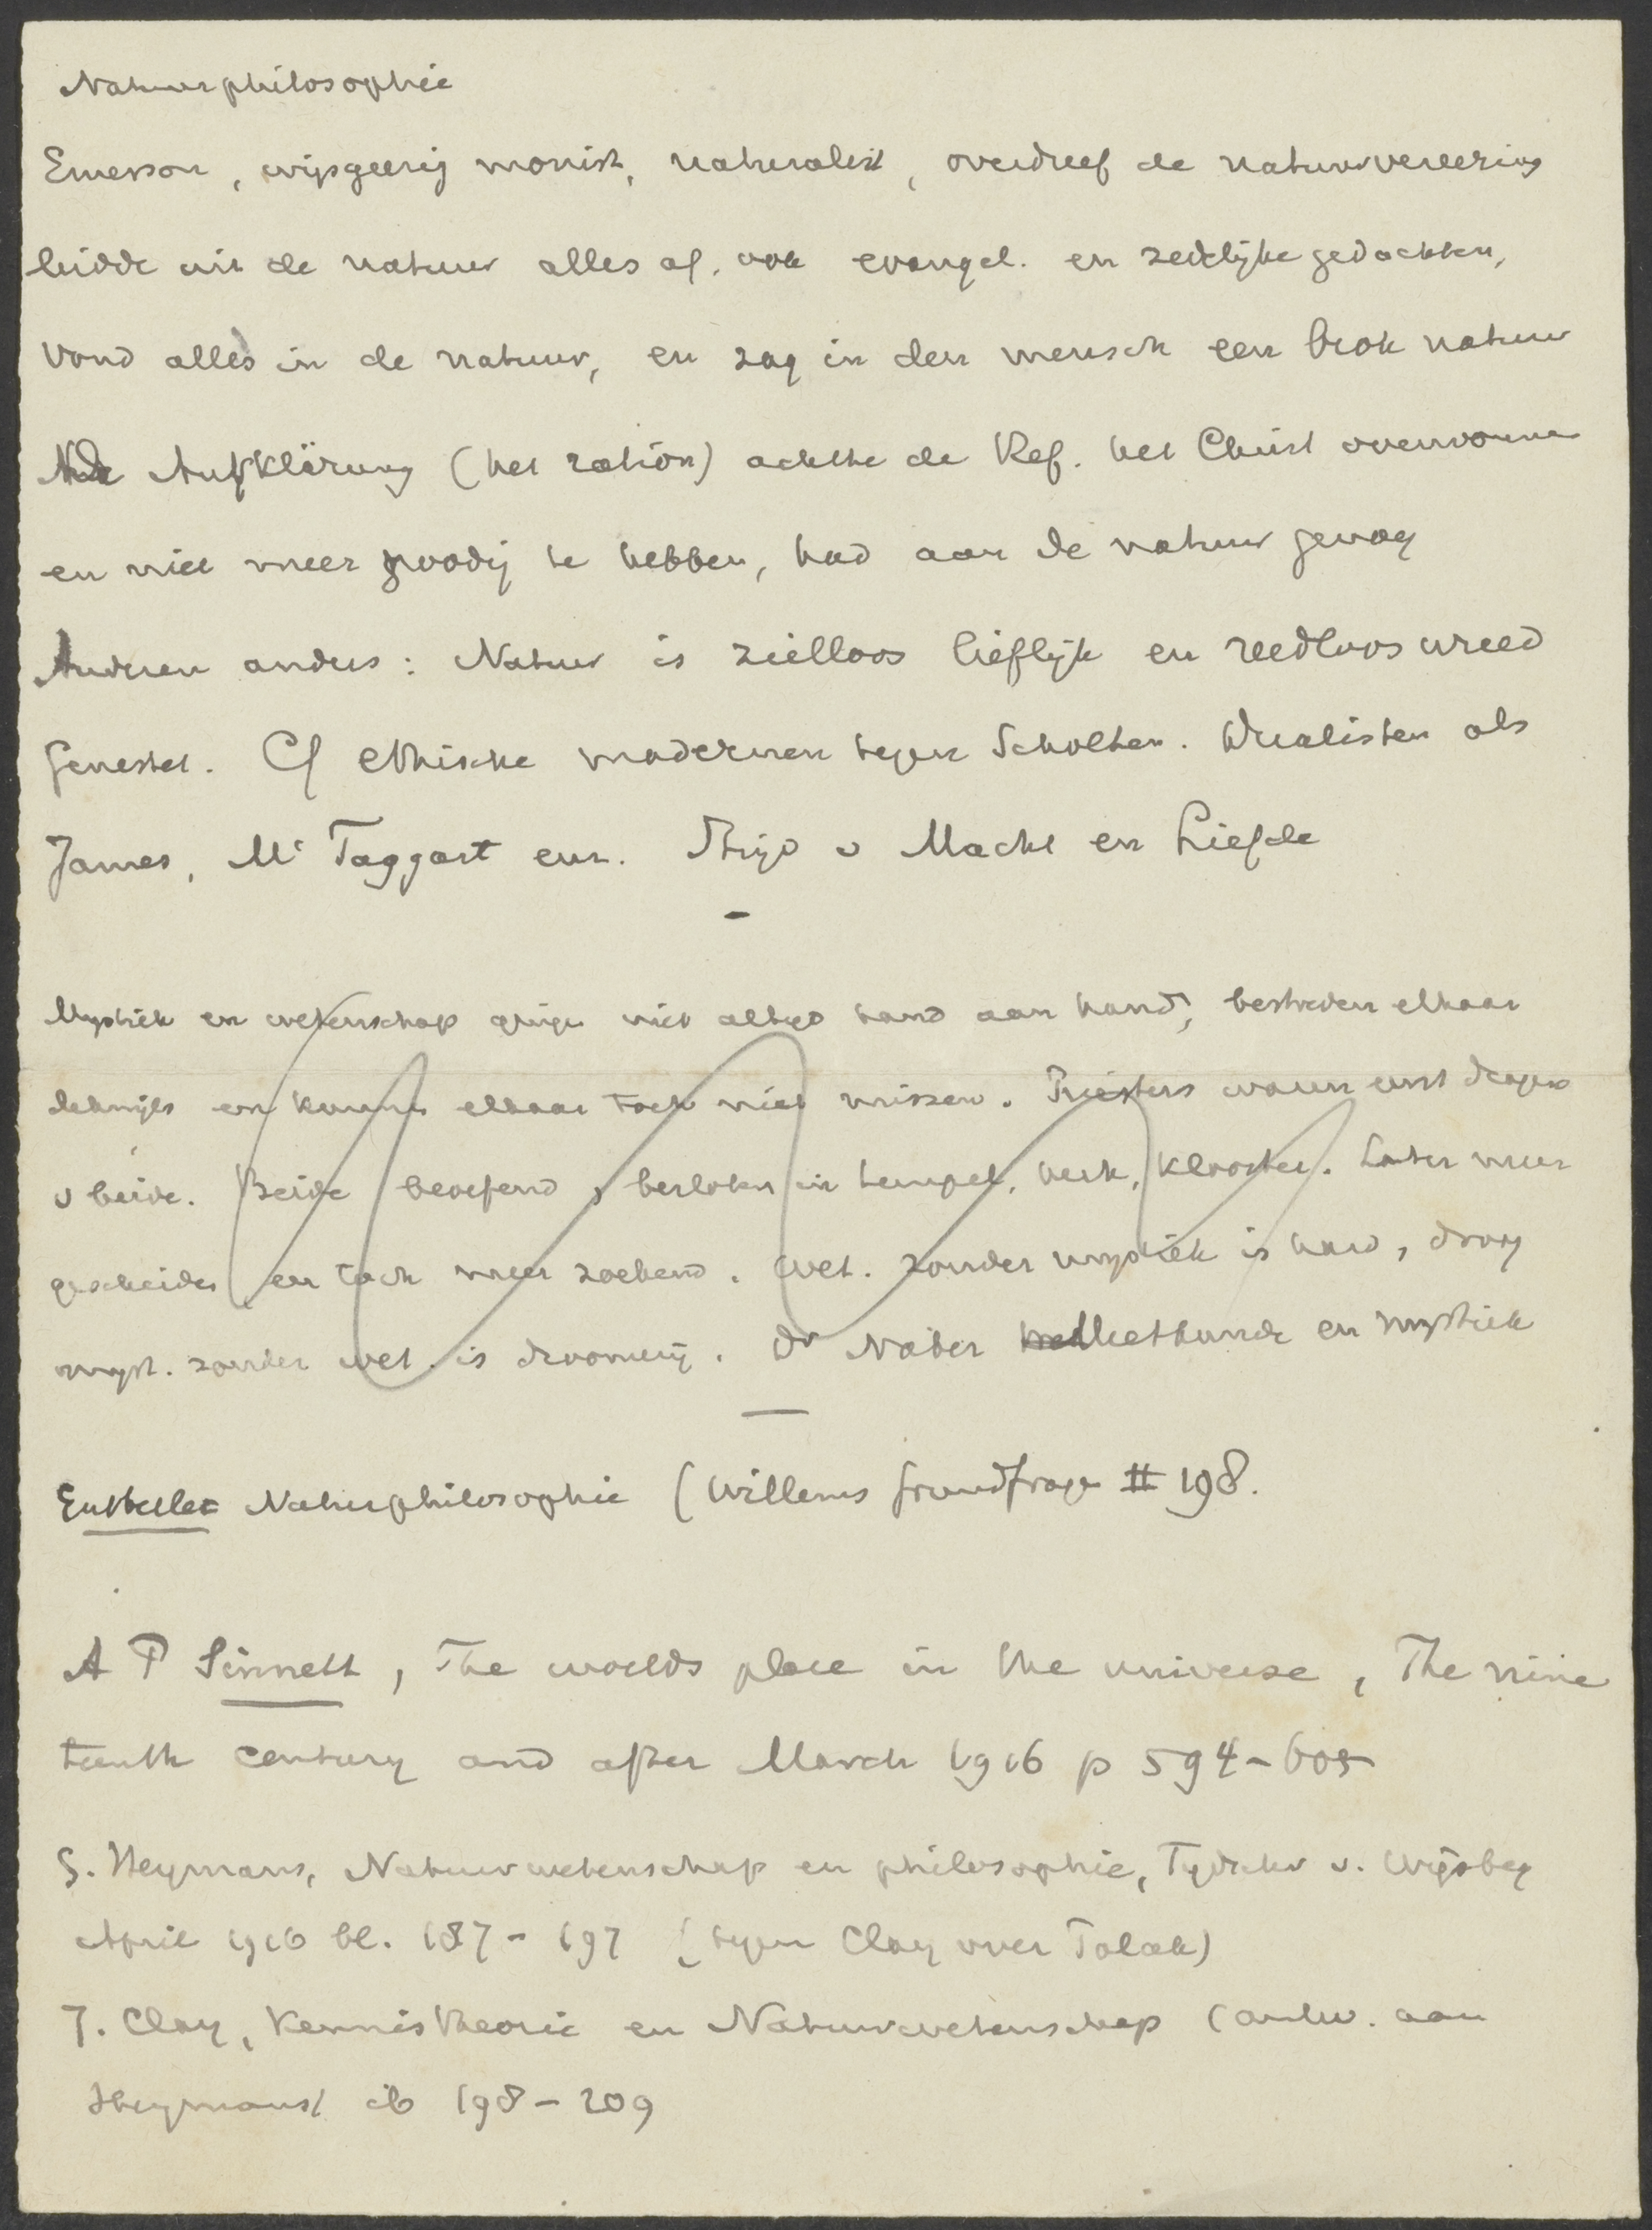 Natuurphilosophie
Emerson, wijsgeerig monist, naturalist, overdreef de natuurvereering
leidde uit de natuur alles af, ook evangel. en zedelijke gedachten,
vond alles in de natuur, en zag in den mensch een brok natuur
De Aufklärung (het ration) achtte de Ref. het Christ overwonnen
en niet meer noodig te hebben, had aan de natuur genoeg
Anderen anders: Natuur is zielloos lieflijk en redeloos wreed
Genestet. Cf ethische modernen tegen Scholten. Dualisten als
James, Mc Taggart enz. Strijd v Macht en Liefde
Mystiek en wetenschap gingen niet altijd hand aan hand, bestreden elkaar
dikwijls en kunnen elkaar toch niet missen. Priesters waren eerst dragers
v beide. Beide beoefend, besloten in tempel, kerk, klooster. Later meer
gescheiden en toch weer zoekend. Wet. zonder mystiek is hard, droog
myst. zonder wet. is droomerij. Dr Naber Meetkunde en mystiek
Natuurphilosophie (Willems Grundfragen II 198.
A P Sinnett, The worlds place in the universe, The nine
teenth century and after March 1916 p 594-605
G. Heymans, Natuurwetenschap en philosophie, Tijdschr v. Wijsbeg
April 1916 bl. 187-197 (tegen Clay over Tolak)
J. Clay, Kennistheorie en Natuurwetenschap (antw. aan
Heymans) ib 198-209